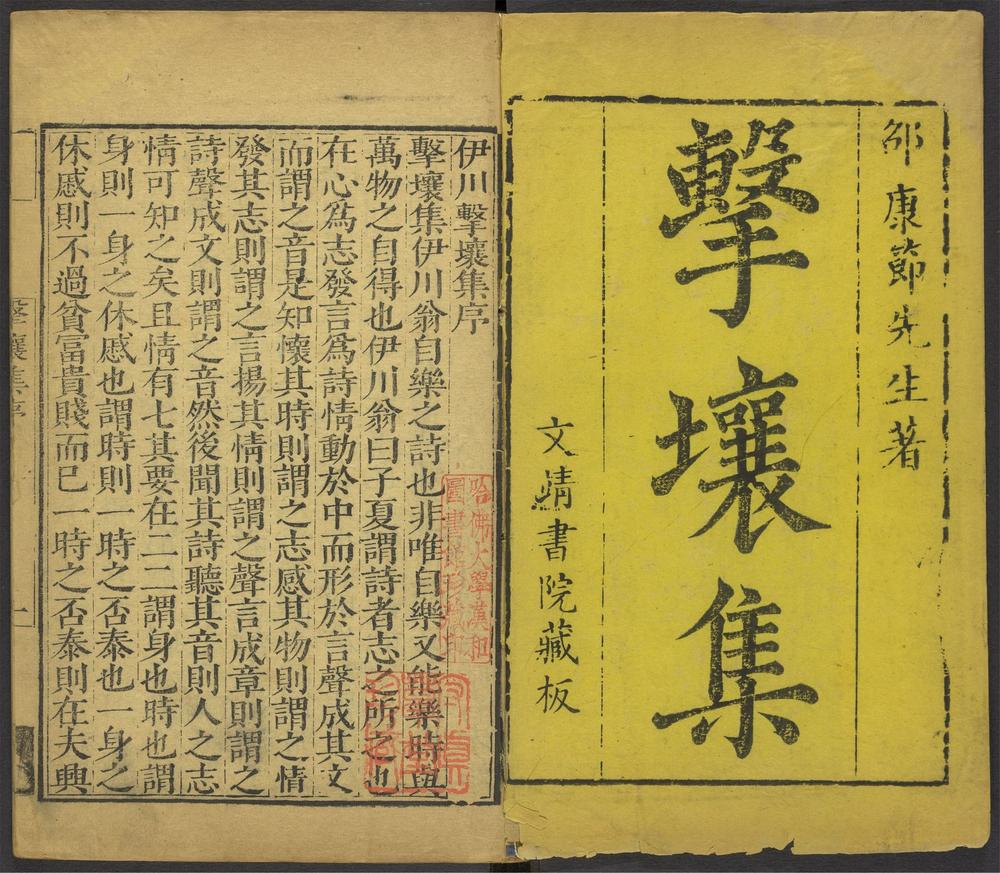 邵康節先生著
擊壤集
文靖書院藏板
伊川擊壤集序
擊壤集伊川翁自樂之詩也非唯自樂又能樂時與
萬物之自得也伊川翁曰子夏謂詩者志之所之也
在心為志發言為詩情動於中而形於言聲成其文
而謂之音是知懷其時則謂之志感其物則謂之情
發其志則謂之言揚其情則謂之聲言成章則謂之
詩聲成文則謂之音然後聞其詩聽其音則人之志
情可知之矣且情有七其要在二二謂身也時也謂
身則一身之休慼也謂時則一時之否泰也一身之
休慼則不過貧富貴賤而已一時之否泰則在夫興
擊壤集序
一
哈佛大學漢和
圖書館珍藏印